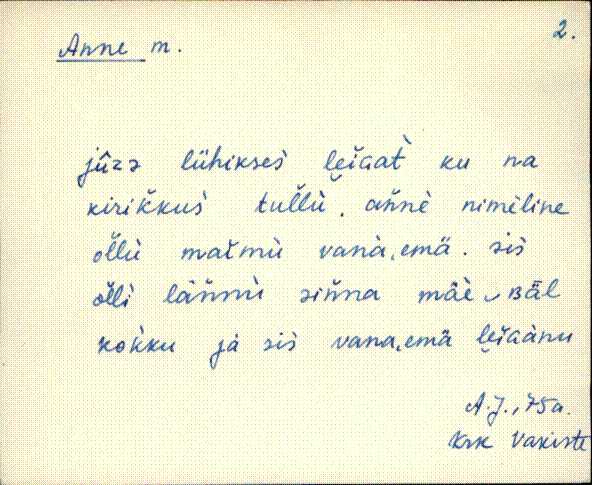 Anne m.
2.
jûzə lühikses̀ lèĭGat̀ ku na
kirik̆kus̀ tul̆lù. an̆nè nimèline
ol̆lù mat̆mù vanà,emä. sis̀
ol̆li làn̆nù sin̆na mäè ᴗBǟl
kok̀ku jà sis̀ vana,emä lèĭGànu
A.J., 75a.
Krk Variste